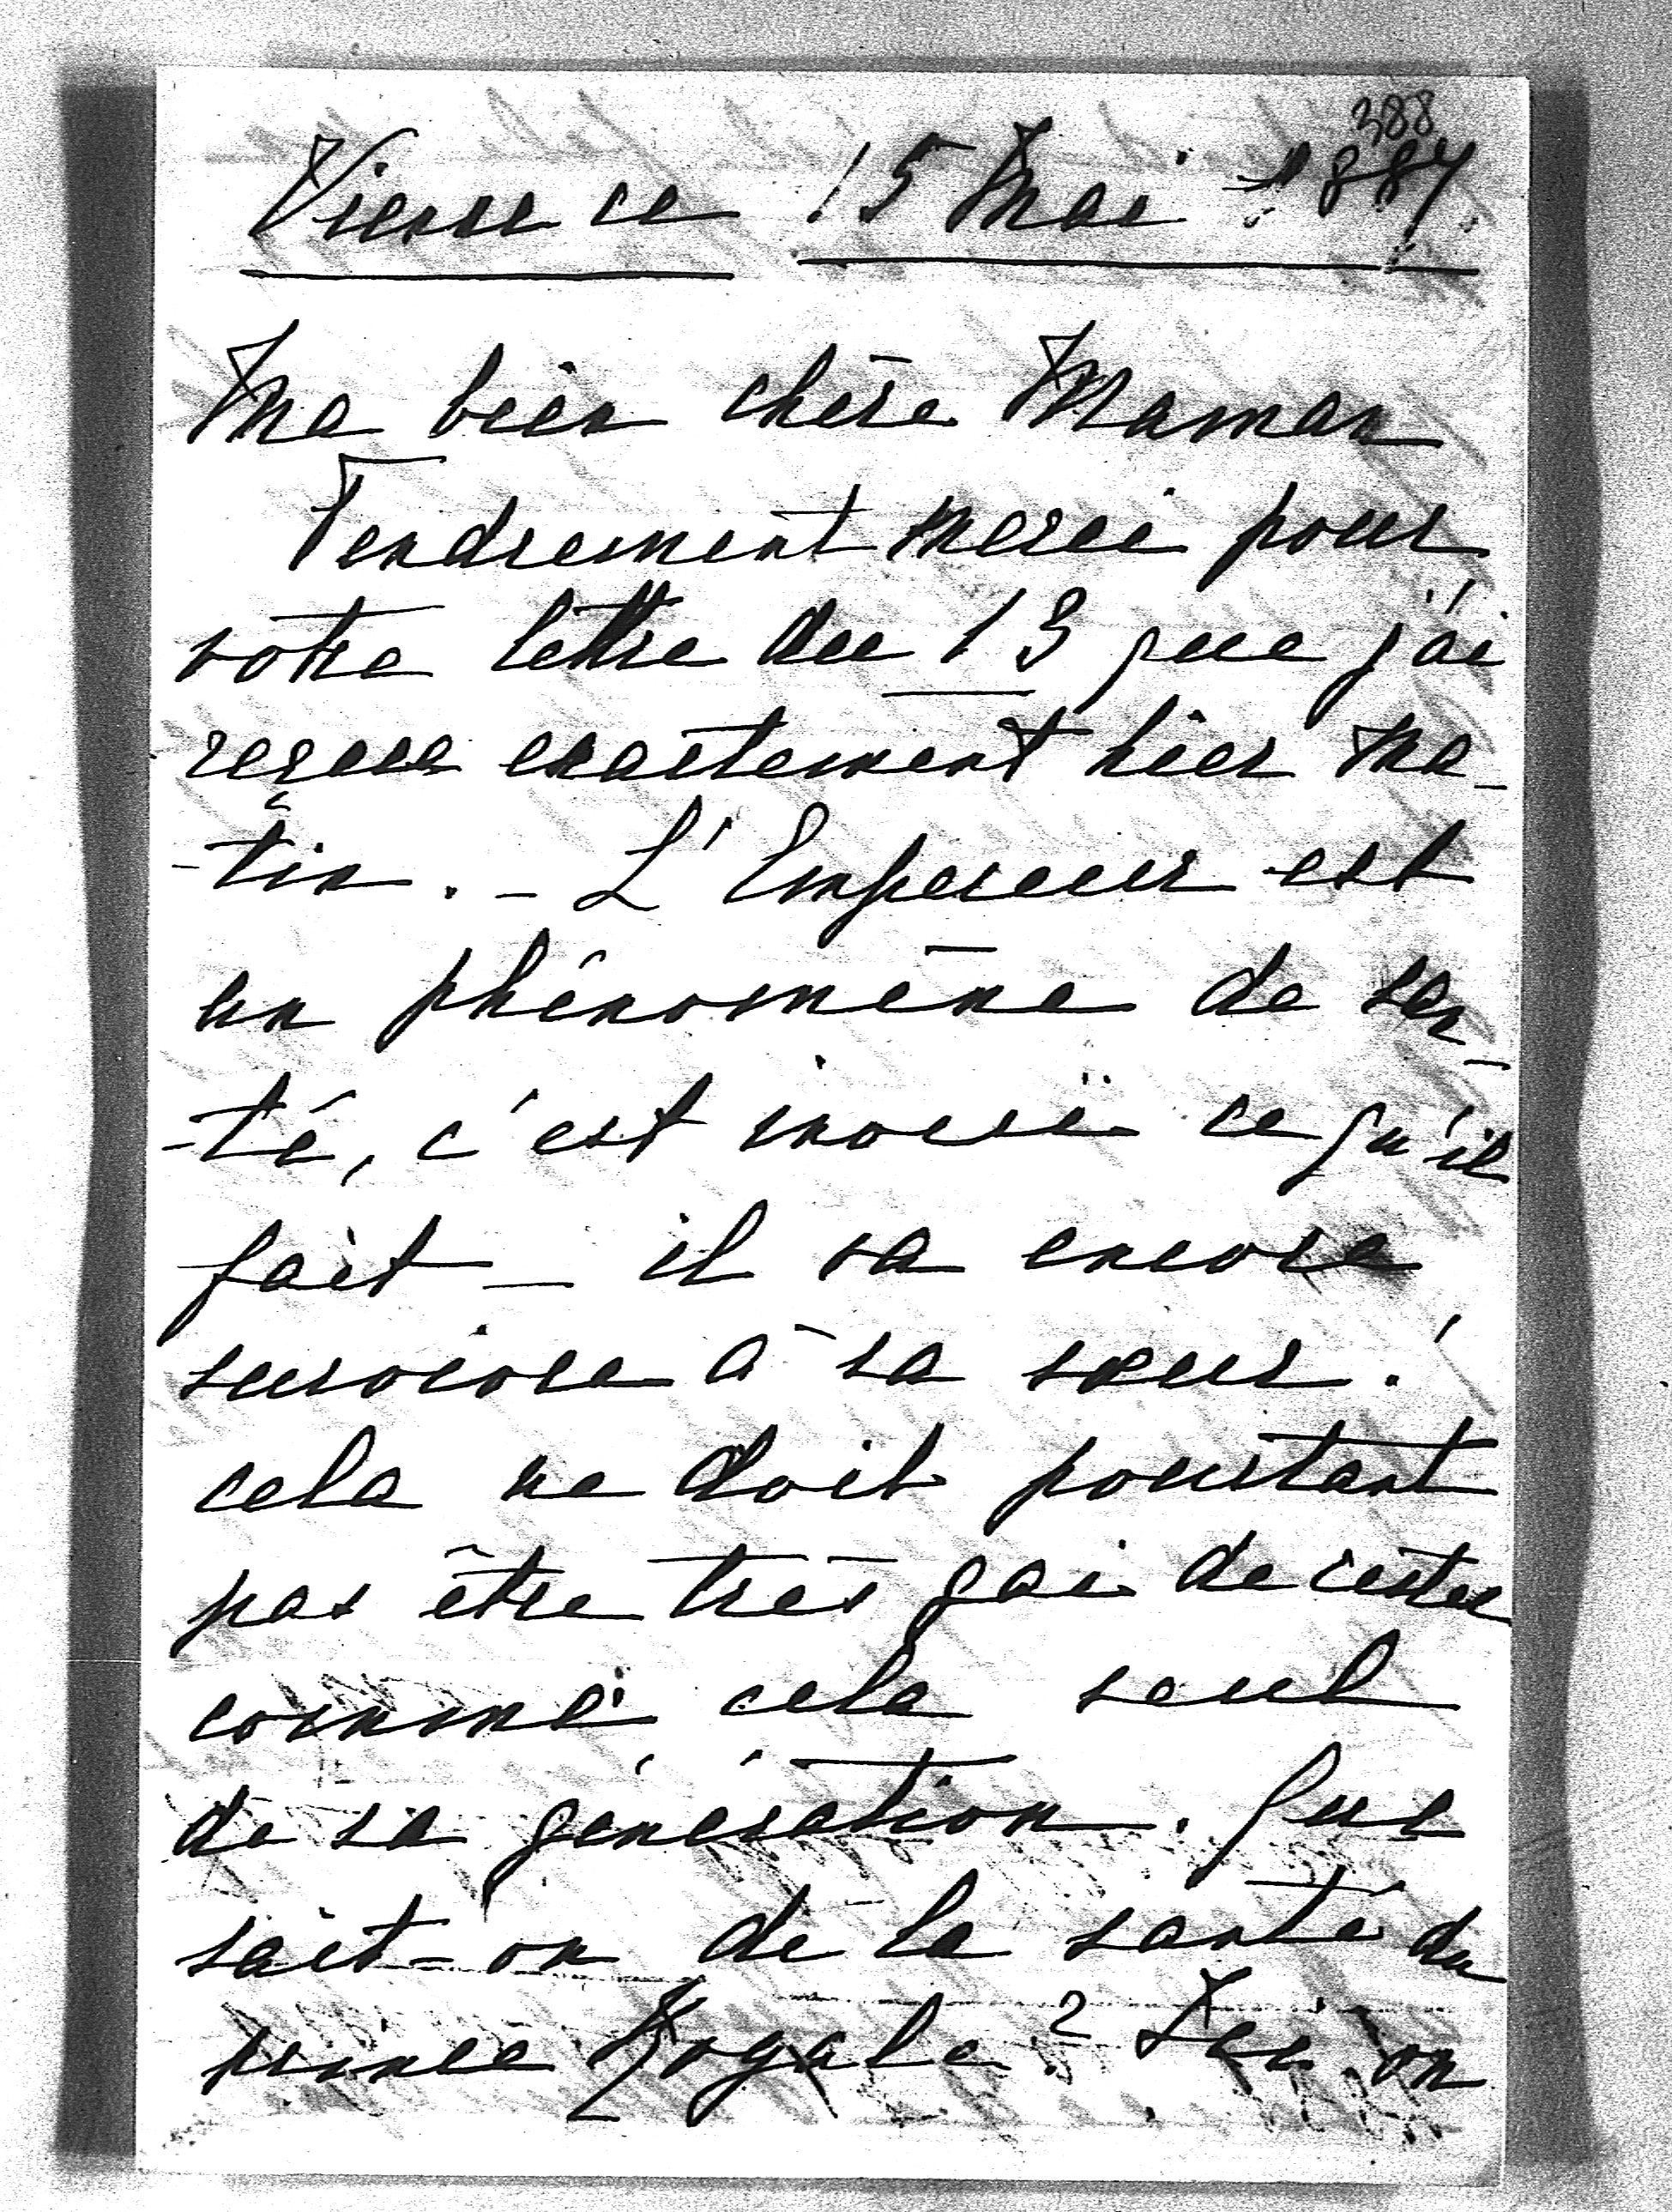 388
Vienne ce 15 Mai 1887.
Ma bien chère Maman
Tendrement merci pour
votre lettre du 13 que j'ai
reçue exactement hier ma-
-tin. - L'Empereur est
un phénomène de san-
-té, c'est inouï ce qu'il
fait - il va encore
survivre à sa sœur!
cela ne doit pourtant
pas être très gai de rester
comme cela seul
de sa génération. Que
sait-on de la santé du
prince Royale? Ici on